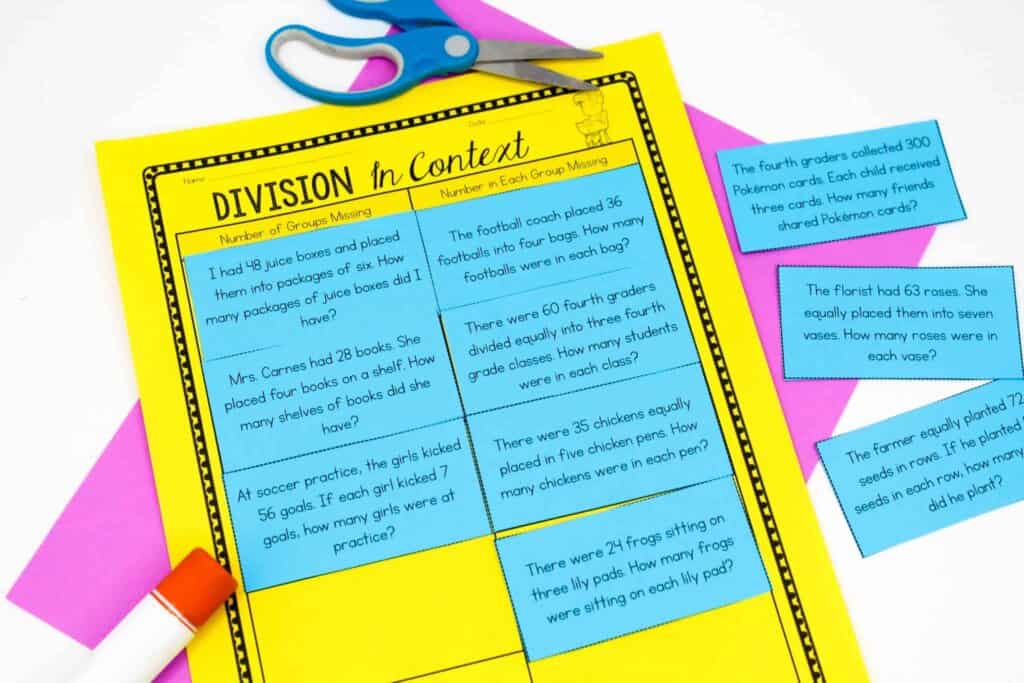 Name
Date
DIVISION In Context
Number of Groups Missing
Number in Each Group Missing
I had 48 juice boxes and placed
them into packages of six. How
many packages of juice boxes did I
have?
Mrs. Carnes had 28 books. She
placed four books on a shelf. How
many shelves of books did she
have?
At soccer practice, the girls kicked
56 goals. If each girl kicked 7
goals, how many girls were at
practice?
The football coach placed 36
footballs into four bags. How many
footballs were in each bag?
There were 60 fourth graders
divided equally into three fourth
grade classes. How many students
were in each class?
There were 35 chickens equally
placed in five chicken pens. How
many chickens were in each pen?
There were 24 frogs sitting on
three lily pads. How many frogs
were sitting on each lily pad?
The fourth graders collected 300
Pokémon cards. Each child received
three cards. How many friends
shared Pokémon cards?
The florist had 63 roses. She
equally placed them into seven
vases. How many roses were in
each vase?
The farmer equally planted 72
seeds in rows. If he planted
seeds in each row, how many
did he plant?